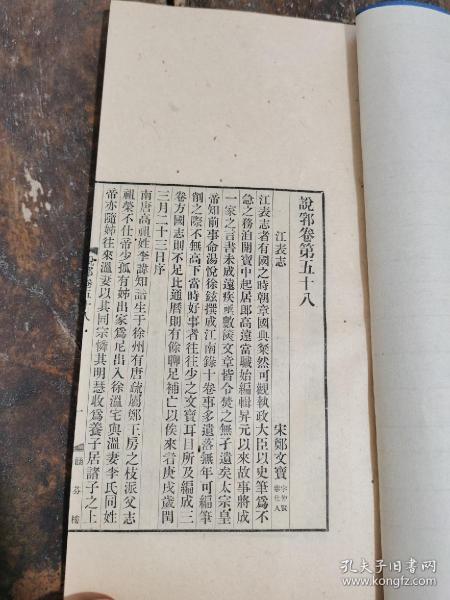 說郛卷第五十八
江表志
宋鄭文寶
江表志者有國之時朝章國典粲然可觀執政大臣以史筆爲不
急之務洎開寶中起居郎高遠當職始編輯昇元以來故事將成
一家之言書未成遠疾亟數篋文章皆令焚之無孑遺矣太宗皇
帝知前事命湯悅徐鉉撰成江南錄十卷事多遺落無年可編筆
削之際不無高下當時好事者往往少之文寶耳目所及編成三
卷方國志則不足比通曆則有餘聊足補亡以俟來者庚戌歲閏
三月二十三日序
南唐高祖姓李諱知誥生于徐州有唐疏屬鄭王房之枝派父志
祖榮不仕帝少孤有姊出家爲尼出入徐溫宅與溫妻李氏同姓
帝亦隨姊往來溫妻以其同宗憐其明慧收爲養子居諸子之上
說郛卷五十八
一
涵芬樓
孔夫子旧书网